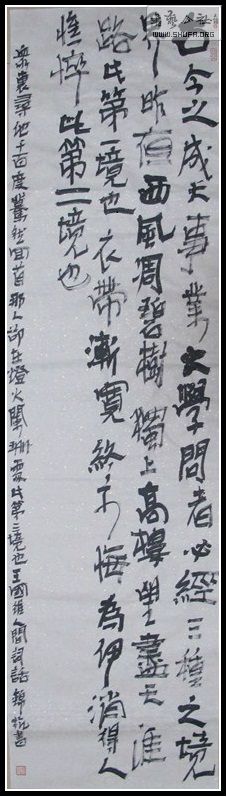 WWW.SHUFA.ORG
古今之成大事業大學問者必經三種之境
界昨夜西風凋碧樹獨上高樓望盡天涯
路此第一境也衣帶漸寬終不悔為伊消得人
憔悴此第二境也
眾裏尋他千百度驀然回首那人卻在燈火闌珊處此第三境也王國維人間詞話 書